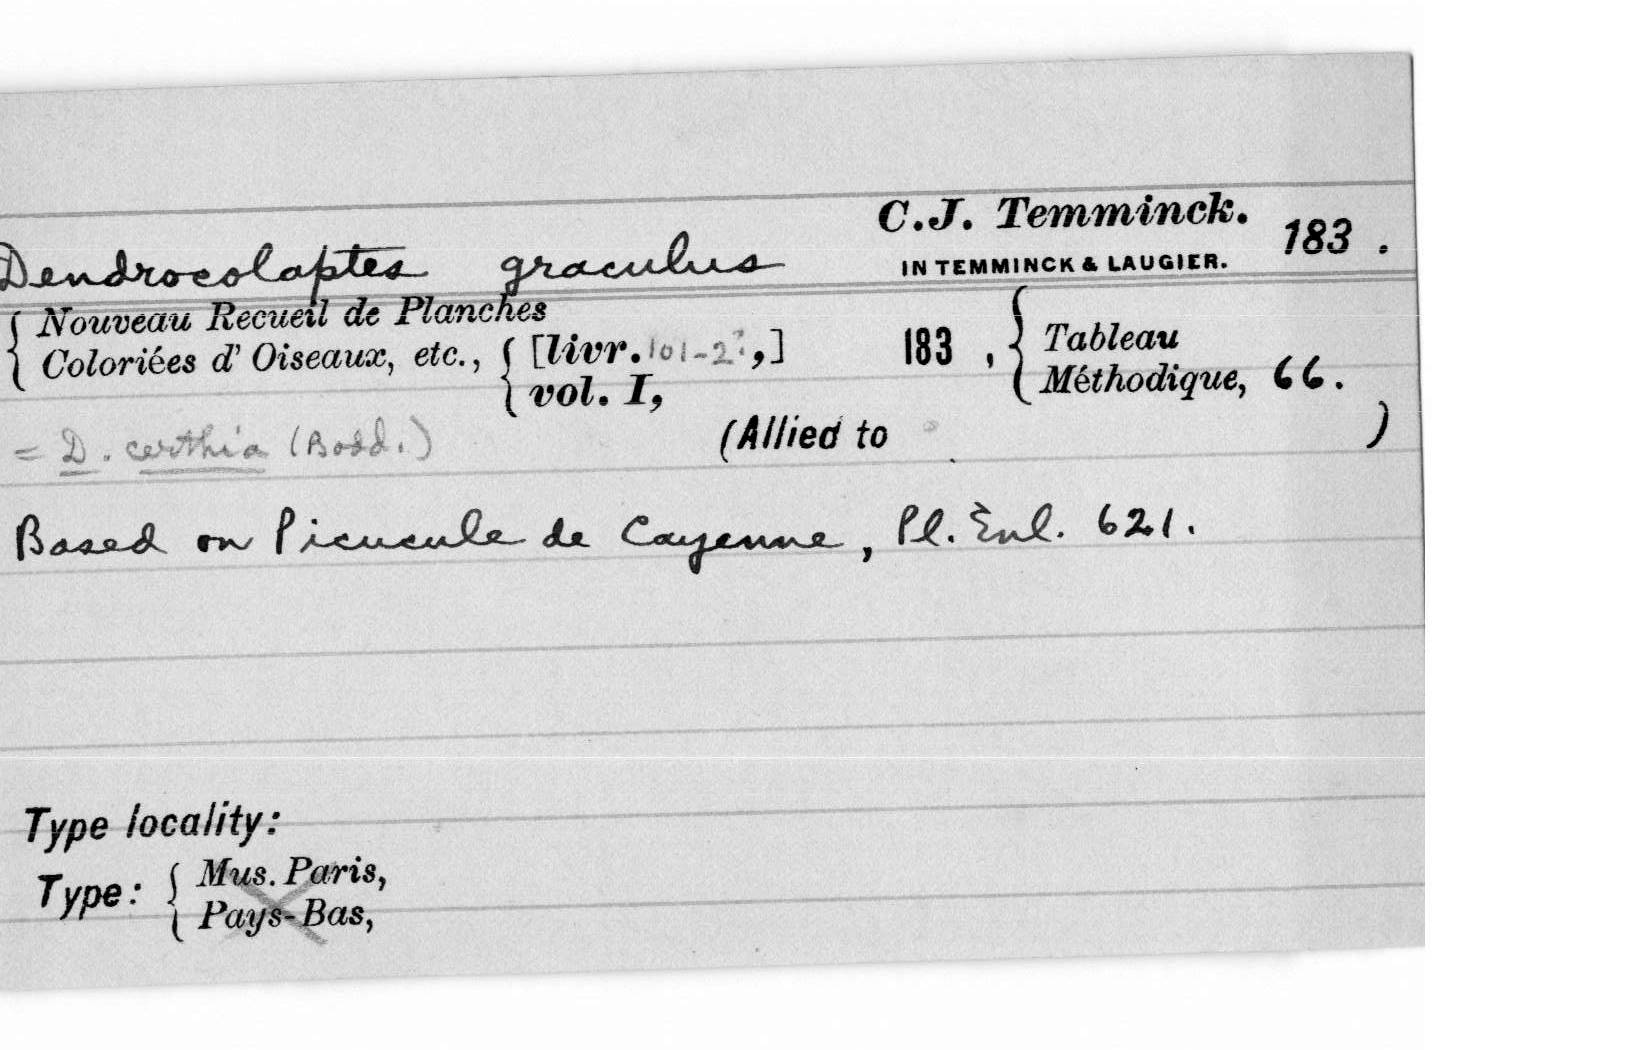 C.J. Temminck.
Dendrocolaptes graculus IN TEMMINCK & LAUGIER. 183 .
{ Nouveau Recueil de Planches
Coloriées d' Oiseaux, etc., { [livr. 101-2?,] 183 , { Tableau
vol. I, Méthodique, 66.
= D. certhia (Bodd.) (Allied to )
Based on Picucule de Cayenne, Pl. Enl. 621.
Type locality:
Type: { Mus. Paris,
Pays-Bas,